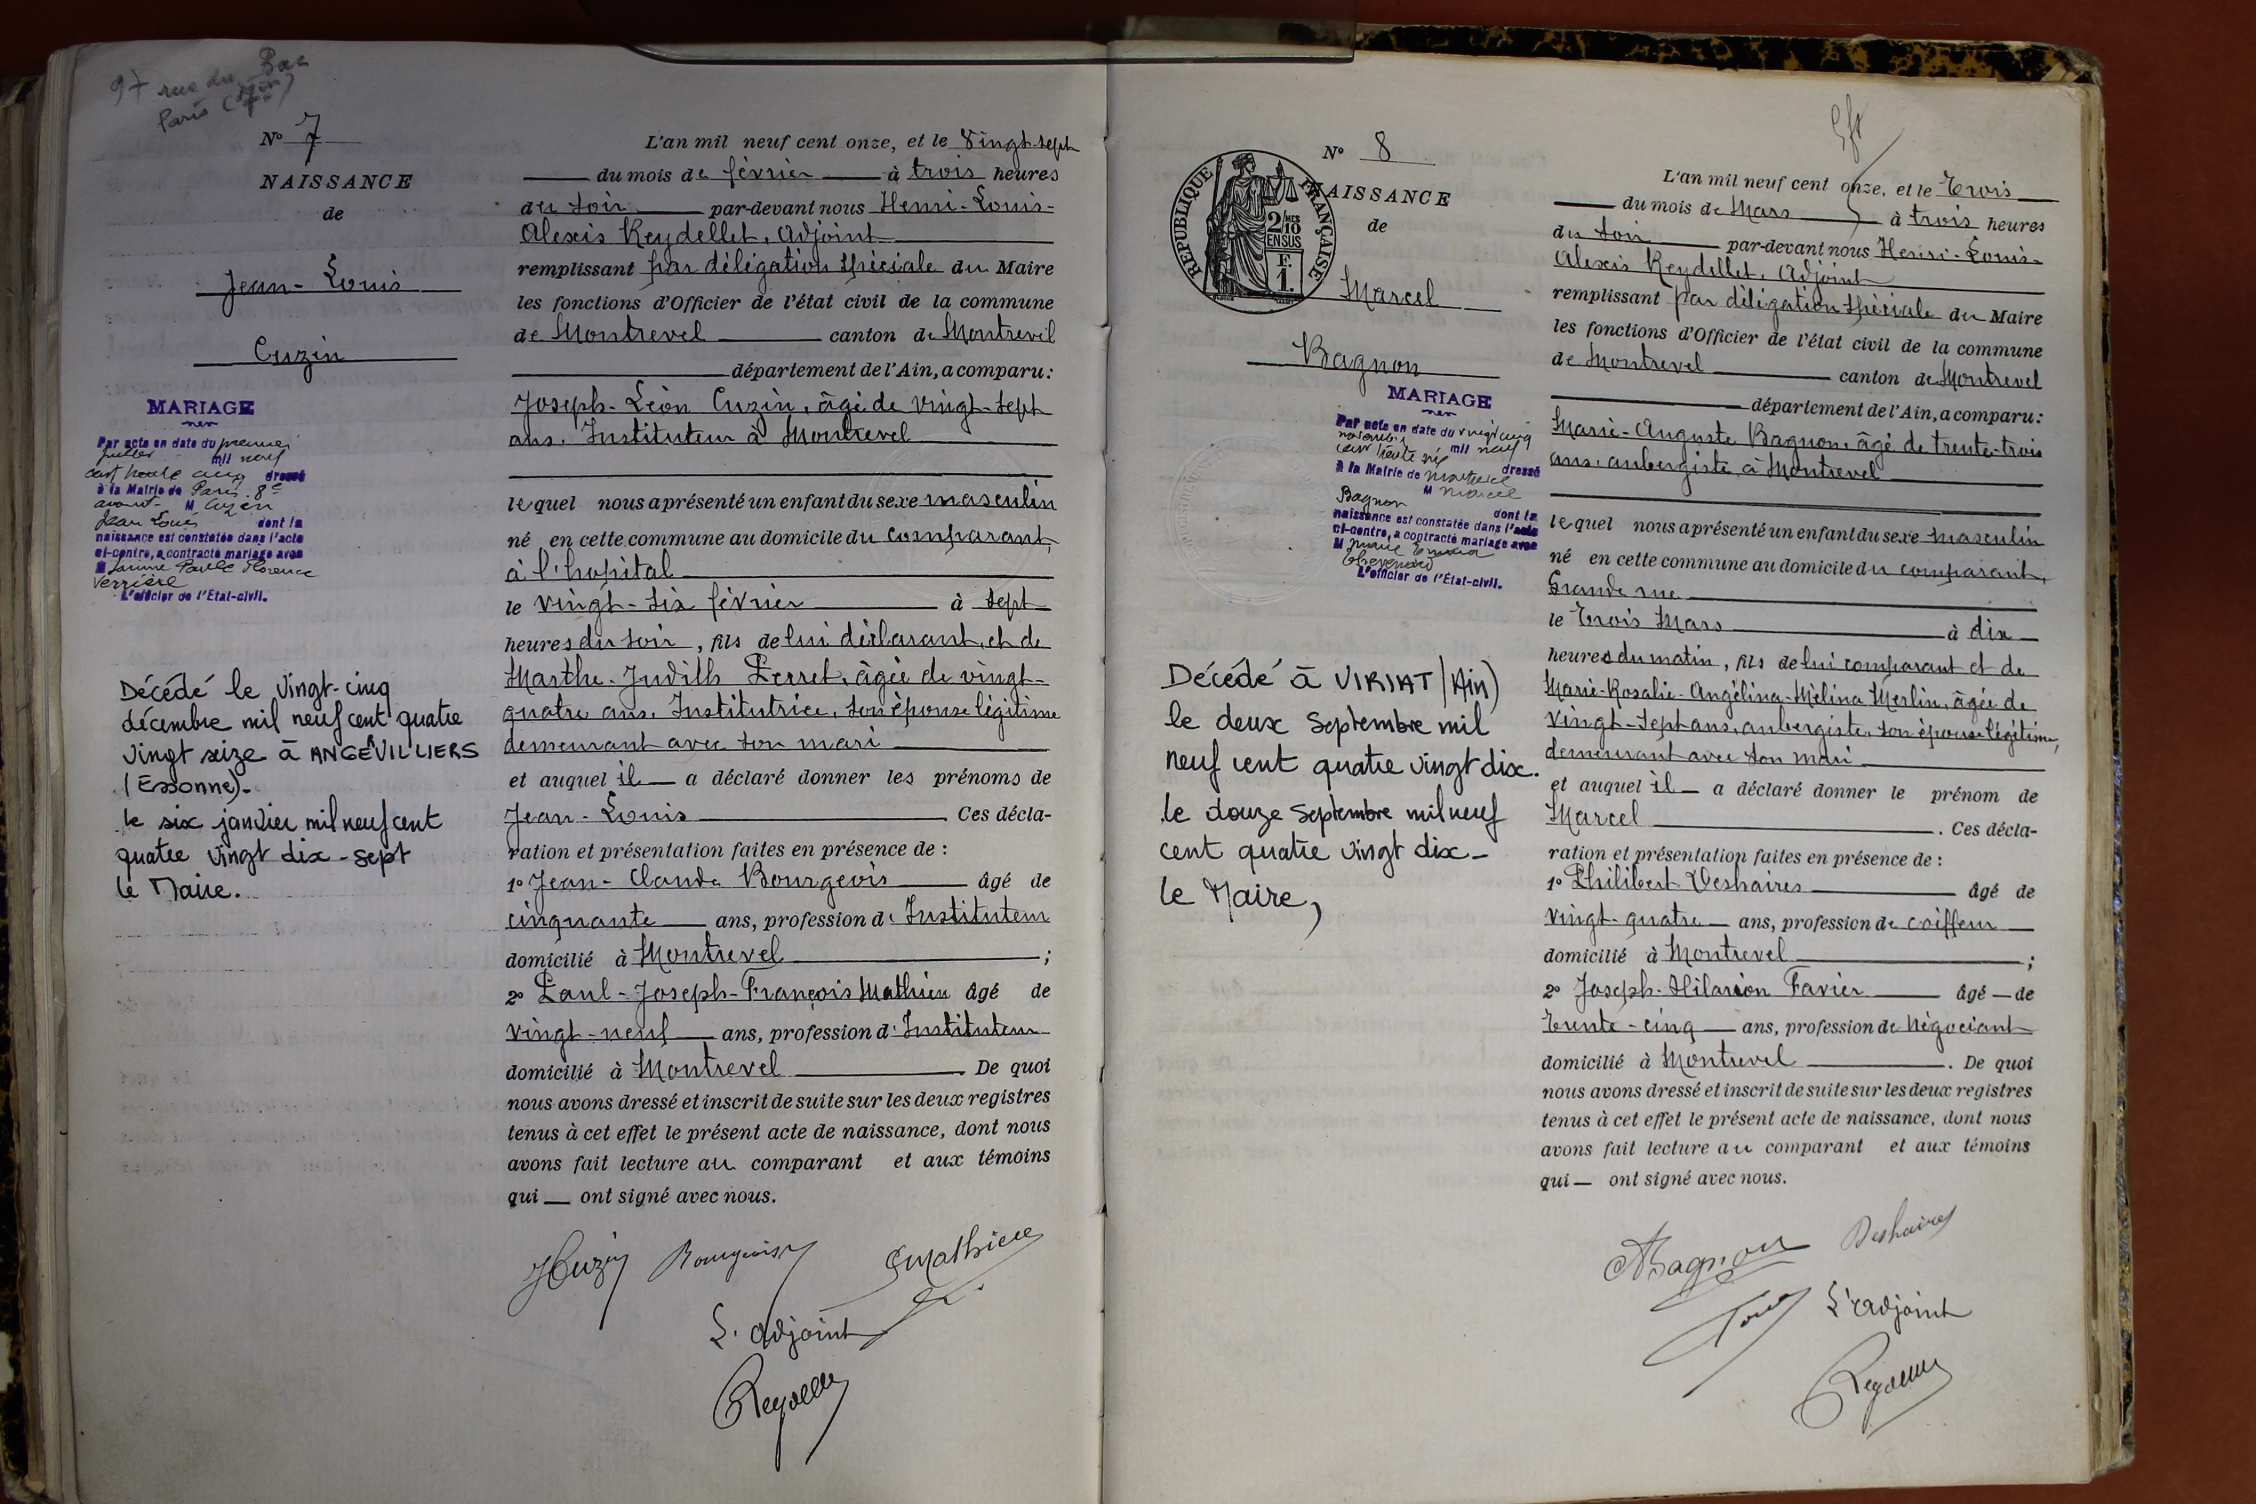 97 rue du Bac
Paris (7ème)
N° 7
NAISSANCE
de
Jean-Louis
Cuzin
MARIAGE
Par acte en date du premier
juillet mil neuf
cent trente cinq dressé
à la Mairie de Paris 8e
M Cuzin
Jean Louis dont la
naissance est constatée dans l'acte
ci-contre, a contracté mariage avec
M Jeanne Paule Florence
Verrière
L'officier de l'État-civil.
Décédé le vingt-cinq
décembre mil neuf cent quatre
vingt seize à ANGERVILLIERS
(Essonne)-
le six janvier mil neuf cent
quatre vingt dix-sept
le Maire.
L'an mil neuf cent onze, et le Vingt-sept
du mois de février à trois heures
du soir par-devant nous Henri-Louis-
Alexis Reydellet, Adjoint
remplissant par délégation spéciale du Maire
les fonctions d'Officier de l'état civil de la commune
de Montrevel canton de Montrevel
département de l'Ain, a comparu:
Joseph-Léon Cuzin, âgé de vingt-sept
ans, Instituteur à Montrevel
lequel nous a présenté un enfant du sexe masculin
né en cette commune au domicile du comparant,
à l'hopital
le vingt-six février à sept
heures du soir, fils de lui déclarant, et de
Marthe-Judith Perret, âgée de vingt-
quatre ans, Institutrice, son épouse légitime
demeurant avec son mari
et auquel il a déclaré donner les prénoms de
Jean-Louis Ces décla-
ration et présentation faites en présence de :
1° Jean-Claude Bourgeois âgé de
cinquante ans, profession d'Instituteur
domicilié à Montrevel ;
2° Paul-Joseph-François Mathieu âgé de
vingt-neuf ans, profession d'Instituteur
domicilié à Montrevel . De quoi
nous avons dressé et inscrit de suite sur les deux registres
tenus à cet effet le présent acte de naissance, dont nous
avons fait lecture au comparant et aux témoins
qui ont signé avec nous.
JCuzin Bourgeois Mathieu
L'adjoint
Reydellet
RÉPUBLIQUE FRANÇAISE
2/10 MES
EN SUS
F.
1.
N° 8
NAISSANCE
de
Marcel
Bagnon
MARIAGE
Par acte en date du vingt cinq
novembre mil neuf
cent trente six dressé
à la Mairie de Montrevel
M Marcel
Bagnon dont la
naissance est constatée dans l'acte
ci-contre, a contracté mariage avec
M Marie
L'officier de l'État-civil.
Décédé à VIRIAT (Ain)
le deux Septembre mil
neuf cent quatre vingt dix.
le douze Septembre mil neuf
cent quatre vingt dix-
le Maire,
L'an mil neuf cent onze, et le Trois
du mois de Mars à trois heures
du soir par-devant nous Henri-Louis-
Alexis Reydellet, Adjoint
remplissant par délégation spéciale du Maire
les fonctions d'Officier de l'état civil de la commune
de Montrevel canton de Montrevel
département de l'Ain, a comparu:
Marie-Auguste Bagnon, âgé de trente-trois
ans, aubergiste à Montrevel
lequel nous a présenté un enfant du sexe masculin
né en cette commune au domicile du comparant,
Grande rue
le Trois Mars à dix
heures du matin, fils de lui comparant et de
Marie-Rosalie-Angélina-Mélina Merlin, âgée de
vingt-sept ans, aubergiste, son épouse légitime,
demeurant avec son mari
et auquel il a déclaré donner le prénom de
Marcel . Ces décla-
ration et présentation faites en présence de :
1° Philibert Deshaires âgé de
vingt-quatre ans, profession de coiffeur
domicilié à Montrevel ;
2° Joseph-Hilarion Favier âgé de
trente-cinq ans, profession de Négociant
domicilié à Montrevel . De quoi
nous avons dressé et inscrit de suite sur les deux registres
tenus à cet effet le présent acte de naissance, dont nous
avons fait lecture au comparant et aux témoins
qui ont signé avec nous.
ABagnon Deshaires
L'adjoint
Reydellet